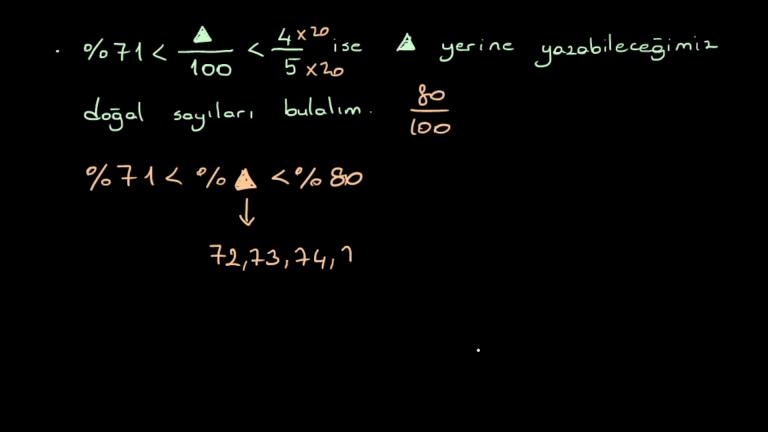 . %71 < ▲/100 < 4x20/5x20 ise ▲ yerine yazabileceğimiz
doğal sayıları bulalım. 80/100
%71 < %▲ < %80
↓
72, 73, 74,